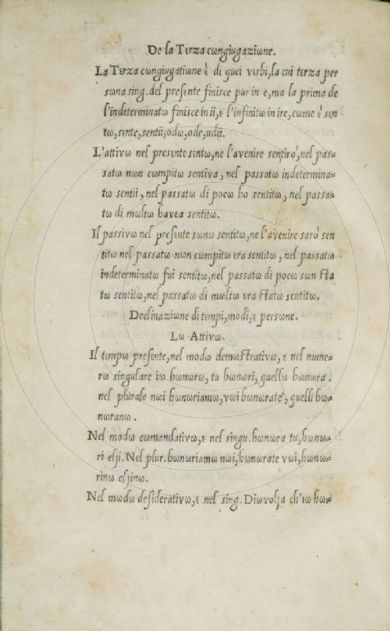 De la Terza cωngiugaziωne.
La Terza cωngiugatiωne ὲ di quei verbi, la cui terza per
sωna sing. del presente finisce pur in e, ma la prima de
l'indeterminatω finisce in ii, ε l'infinitω in ire, cωme ὲ sεn
tω, sεnte, sentii; ωdω, ωde, udii.
L'attivω nel presente sεntω, ne l'avenire sentirὸ, nel pas=
satω nωn cωmpitω sentiva, nel passatω indeterminα=
tω sentii, nel passatω di pωcω hω sentitω, nel passa=
tω di mωltω havea sentitω.
Il passivω nel presεnte sωnω sentitω, ne l'avenire sarὸ sen
titω nel passatω nωn cωmpitω εra sentitω, nel passatω
indeterminatω fui sentitω, nel passatω di pωcω sωn sta
tω sentitω, nel passatω di mωltω εra statω sentitω.
Declinaziωne di tεmpi, mωdi, ε persωne.
Lω Attivω.
Il tεmpω presεnte, nel mωdω demωstrativω, ε nel nume=
rω singulare iω hωnωrω, tu hωnωri, quellω hωnωra.
nel plurale nωi hωnωriamω, vωi hωnωrate, quelli hω=
nωranω.
Nel mωdω cωmandativω, ε nel singu. hωnωra tu, hωnω=
ri elji. Nel plur. hωnωriamω nωi, hωnωrate vωi, hωnω=
rinω eljinω.
Nel mωdω desiderativω, ε nel sing. Diω vωlja ch'iω hω=